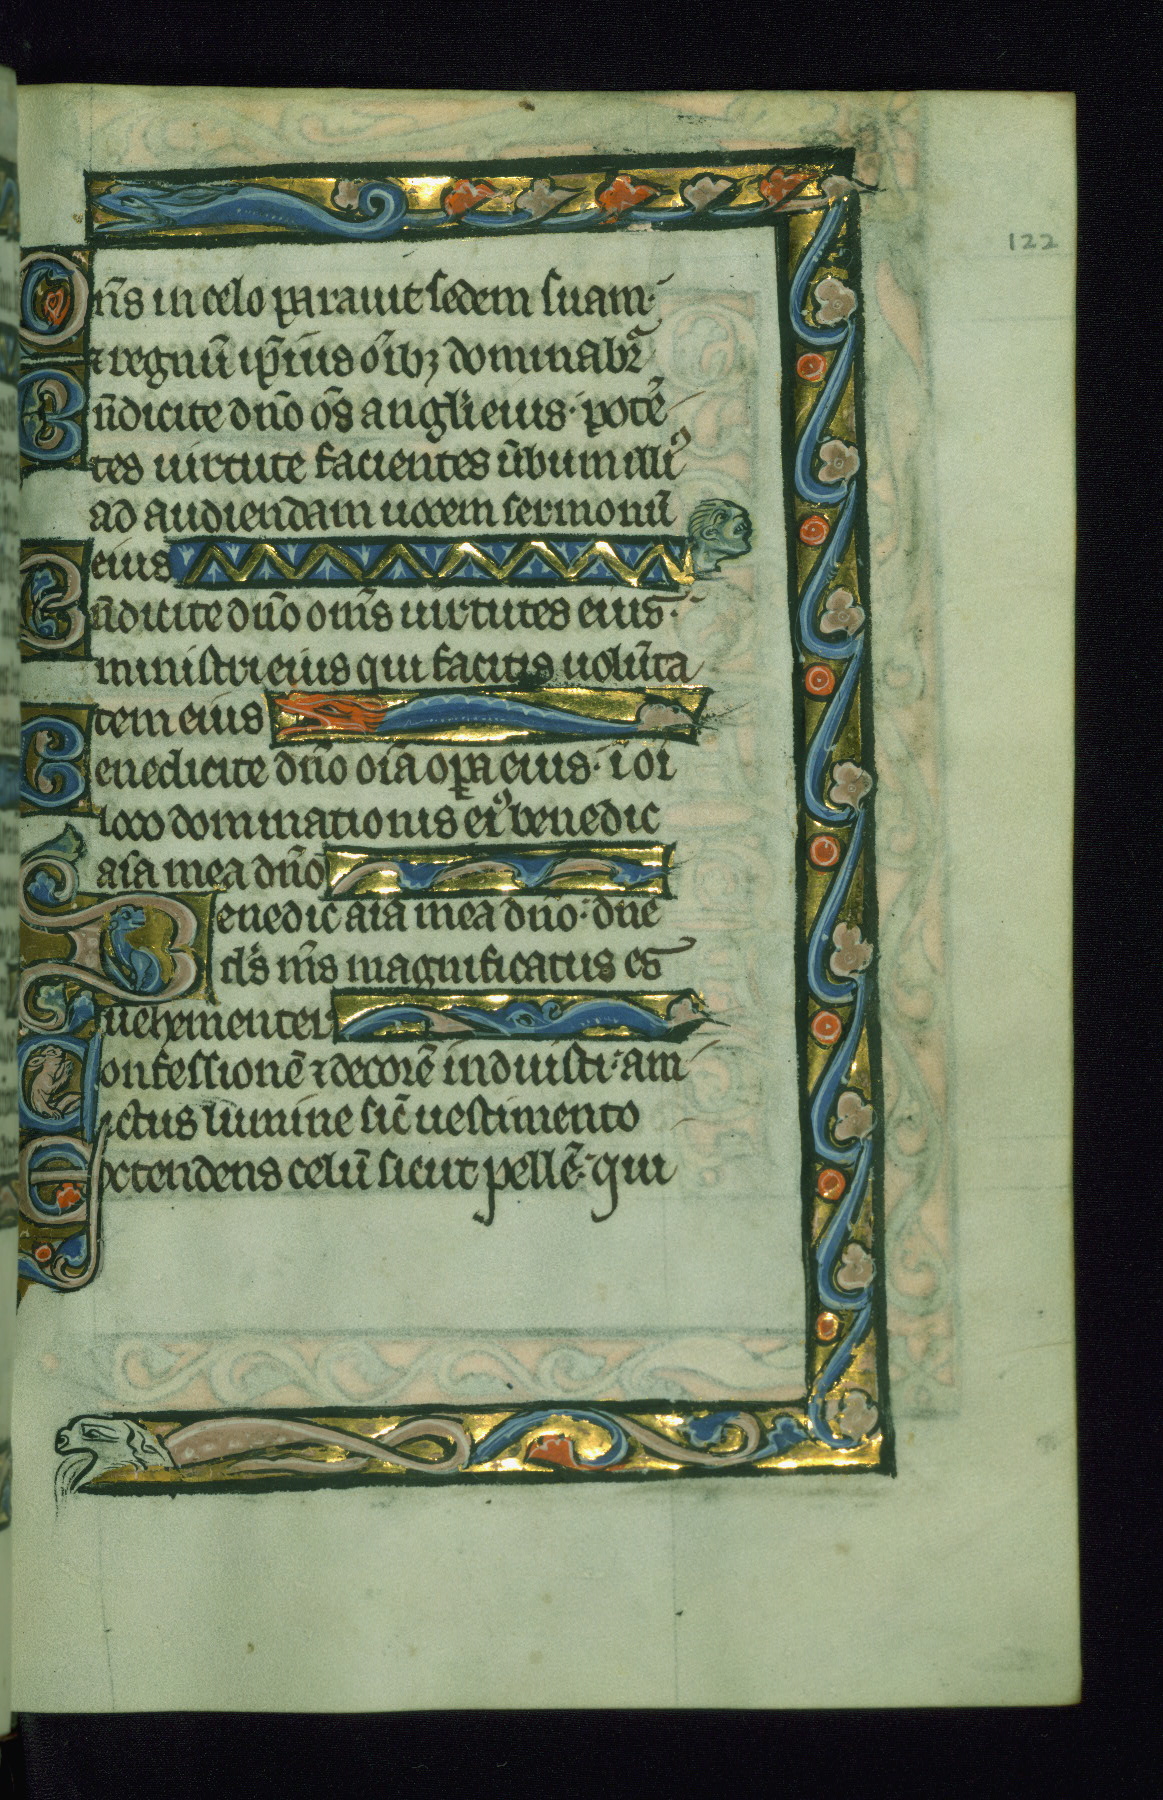 122
Dn̄s in celo parauit sedem suam·
⁊ regnū ip̄ius om̄ibꝫ dominabr̄
Bn̄dicite dn̄o om̄s angłi eius· potē
tes uirtute facientes ūbum illiꝰ
ad audiendam uocem sermonū
eius
Bn̄dicite dn̄o om̄s uirtutes eius·
ministri eius qui facitis uolūta
tem eius
Benedicite dn̄o oīa oꝑa eius· ī oī
loco dominationis eiꝰ benedic
aīa mea dn̄o
Benedic aīa mea dn̄o· dn̄e
ds̄ ms̄ magnificatus es
uehementer
Confessionē ⁊ decorē induisti· am
ictus lumine sic̄ uestimento
Extendens celū sicut pellē· qui